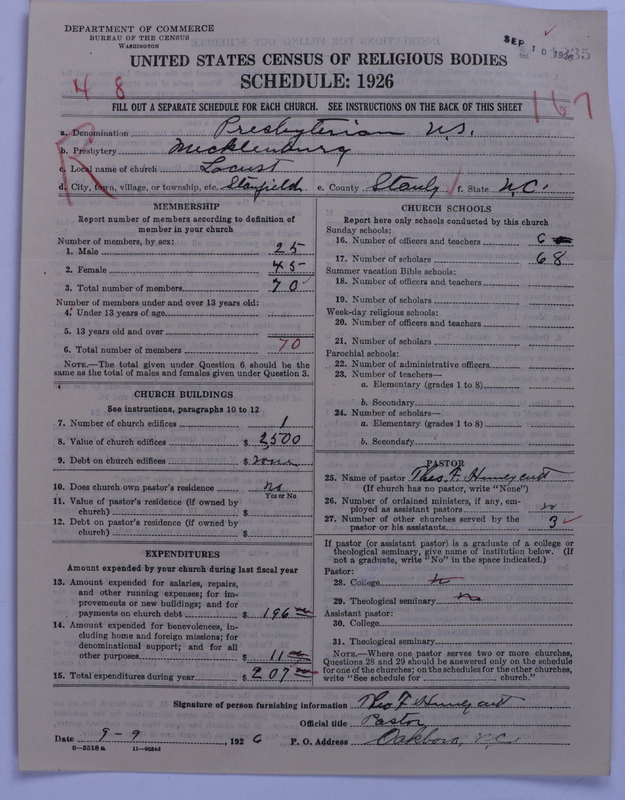 DEPARTMENT OF COMMERCE
BUREAU OF THE CENSUS
WASHINGTON
SEP 10 1926
UNITED STATES CENSUS OF RELIGIOUS BODIES
SCHEDULE: 1926
4 8
FILL OUT A SEPARATE SCHEDULE FOR EACH CHURCH. SEE INSTRUCTIONS ON THE BACK OF THIS SHEET
167
R
a. Denomination Presbyterian U.S.
b. Presbytery Mecklenburg
c. Local name of church Locust
d. City, town, village, or township, etc. Stanfield e. County Stanly f. State N.C.
MEMBERSHIP
Report number of members according to definition of
member in your church
Number of members, by sex:
1. Male 25
2. Female 45
3. Total number of members 70
Number of members under and over 13 years old:
4. Under 13 years of age
5. 13 years old and over
6. Total number of members 70
NOTE.—The total given under Question 6 should be the
same as the total of males and females given under Question 3.
CHURCH BUILDINGS
See instructions, paragraphs 10 to 12
7. Number of church edifices 1
8. Value of church edifices $ 2,500
9. Debt on church edifices $ none
10. Does church own pastor's residence no
Yes or No
11. Value of pastor's residence (if owned by
church) $
12. Debt on pastor's residence (if owned by
church) $
EXPENDITURES
Amount expended by your church during last fiscal year
13. Amount expended for salaries, repairs,
and other running expenses; for im-
provements or new buildings; and for
payments on church debt $ 196 00
14. Amount expended for benevolences, in-
cluding home and foreign missions; for
denominational support; and for all
other purposes $ 11 00
15. Total expenditures during year $ 207 00
CHURCH SCHOOLS
Report here only schools conducted by this church
Sunday schools:
16. Number of officers and teachers 6
17. Number of scholars 68
Summer vacation Bible schools:
18. Number of officers and teachers
19. Number of scholars
Week-day religious schools:
20. Number of officers and teachers
21. Number of scholars
Parochial schools:
22. Number of administrative officers
23. Number of teachers—
a. Elementary (grades 1 to 8)
b. Secondary
24. Number of scholars—
a. Elementary (grades 1 to 8)
b. Secondary
PASTOR
25. Name of pastor Theo. F. Huneycutt
(If church has no pastor, write "None")
26. Number of ordained ministers, if any, em-
ployed as assistant pastors no
27. Number of other churches served by the
pastor or his assistants 3
If pastor (or assistant pastor) is a graduate of a college or
theological seminary, give name of institution below. (If
not a graduate, write "No" in the space indicated.)
Pastor:
28. College no
29. Theological seminary no
Assistant pastor:
30. College
31. Theological seminary
NOTE.—Where one pastor serves two or more churches,
Questions 28 and 29 should be answered only on the schedule
for one of the churches; on the schedules for the other churches,
write "See schedule for church."
Signature of person furnishing information Theo F Huneycutt
Official title Pastor
Date 9-9, 1926 P. O. Address Oakboro, N.C.
8-5518 a 11-9034d